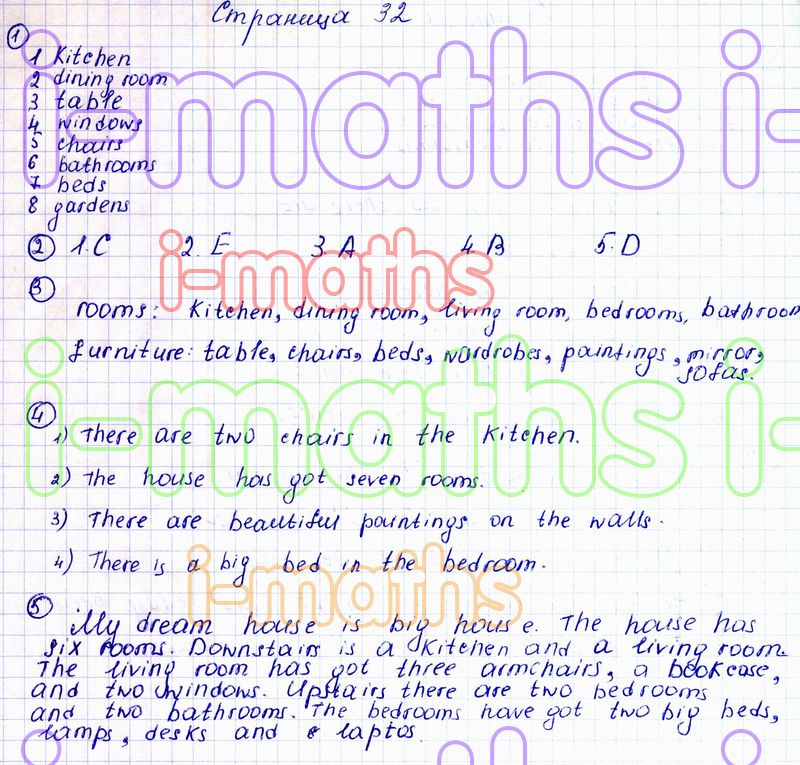 Страница 32
1
1 Kitchen
2 dining room
3 table
4 windows
5 chairs
6 bathrooms
7 beds
8 gardens
2 1. C 2. E 3. A 4. B 5. D
3
rooms: Kitchen, dining room, living room, bedrooms, bathroom
furniture: table, chairs, beds, wardrobes, paintings, mirror,
sofas.
4
1) There are two chairs in the kitchen.
2) The house has got seven rooms.
3) There are beautiful paintings on the walls.
4) There is a big bed in the bedroom.
5
My dream house is big house. The house has
six rooms. Downstairs is a kitchen and a living room.
The living room has got three armchairs, a bookcase,
and two windows. Upstairs there are two bedrooms
and two bathrooms. The bedrooms have got two big beds,
lamps, desks and laptos.
i-maths i-
i-maths
i-maths i-
i-maths